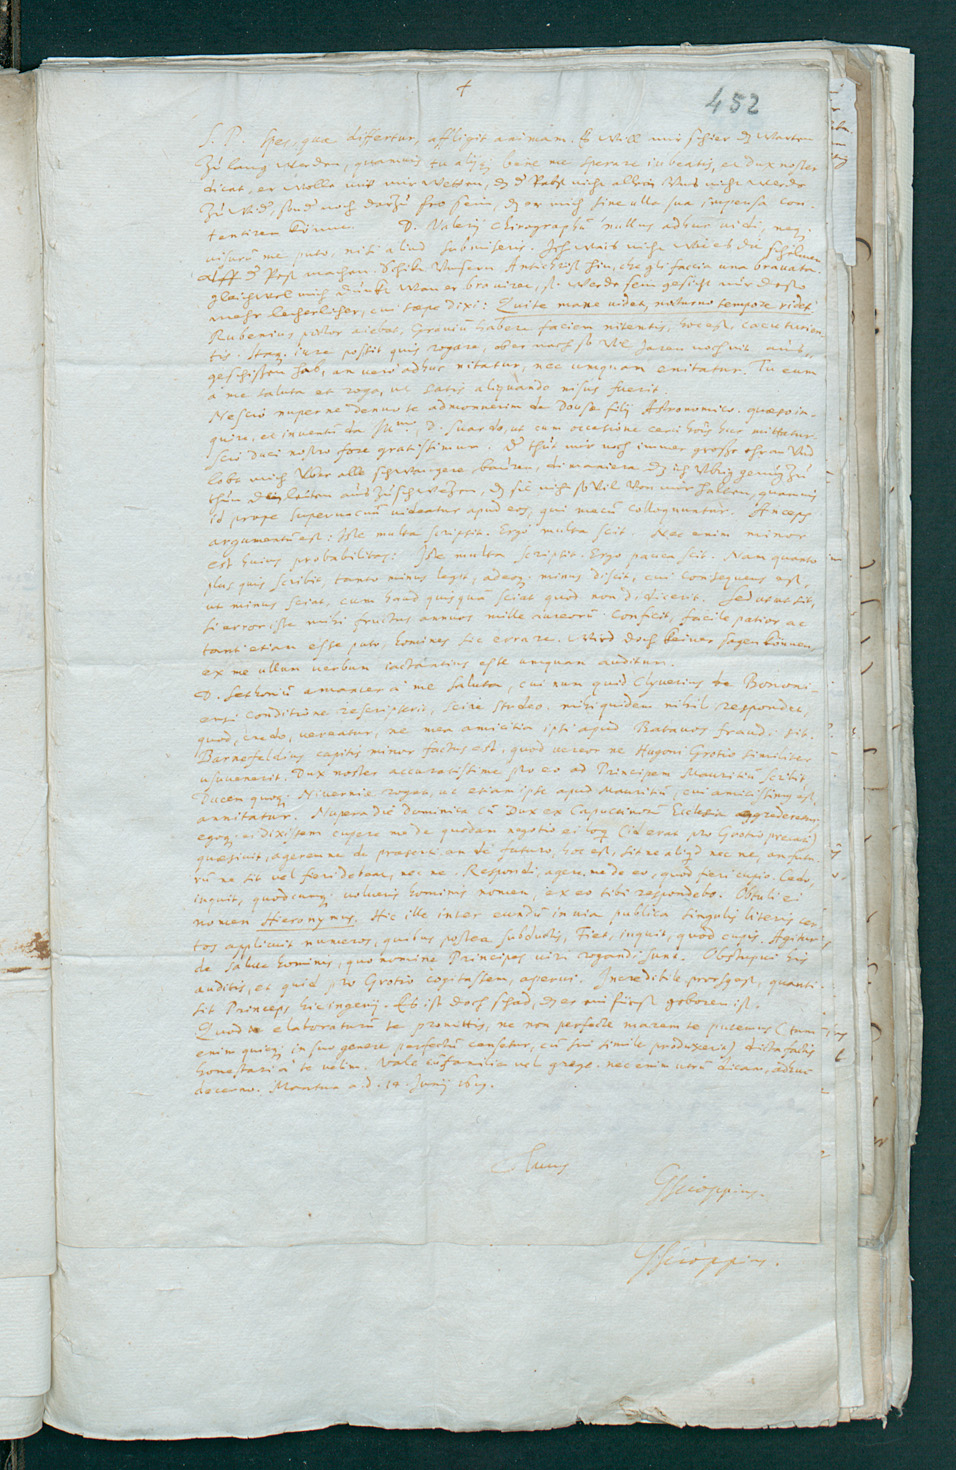 +
452
S. P. Spes, quae differtur, affligit animam. Es will mir schier dz warten
zu lang werden, quamvis tu alijq; bene me sperare iubeatis, et Dux noster
dicat, er wolle mit mir wetten, dz d' Pabst nicht allein uns nicht werde
zu wid', sond' noch darzu fro sein, dz er mich sine ulla sua impensa con-
tentiren könne. D. Valerij Chirographū nullus adhuc vidi, neq;
visurū me puto, nisi aliud submiseris. Ich wais nicht wie es die schelmen
auff d' Post machen. Schikt unsern Antichrist hin, che gli faccia una bravata.
gleichwol mich dunkt wan er bravirt, so werde sein gesicht nur desto
mehr lecherlicher, cui saepe dixi: Qui te mane videt, noturno tempore ridet
Rubenius noster aiebat, habere faciem nitentis, hoc est, cacaturien-
tis. Itaq; iure possit quis rogare, ober nach so vil Jaren noch nit aus-
geschissen hab, an vero adhuc nitatur, nec umquam enitatur. Tu eum
a me saluta et roga, ut satis aliquando nisus fuerit.
Nescio nuper ne denuo te admonuerim de Dousae filij Astronomico. quaeso in-
quire, et inventū da Ill.mo D. Suardo, ut cum occasione certi hōis huc mittatur.
scio Duci nostro fore gratissimum. Er thut mir noch immer grosse ehr an und
lobt mich über alle schwangere bauren, di maniera dz ich übrig genug zu
thun den leuten aus zu schwezen, dz sie nich so vil von mir halten, quamvis
id prope supervacuū videatur apud eos, qui mecū colloquuntur. Anceps
argumentū est: Iste multa scripsit. Ergo multa scit. Nec enim minor
est huius probabilitas: Iste multa scripsit. Ergo pauca scit. Nam quanto
plus quis scribit, tanto minus legit, adeoq; minus discit, cui consequens est,
ut minus sciat, cum haud quisquā sciat quod non didicerit. Sed ut ut sit,
si error iste mihi fructus annuos mille aureorū conficit, facile patior ac
tanti etiam esse puto, homines sic errare. Wird doch keiner sagen können,
ex me ullum verbum iactantius esse unquam auditum.
D. Sethoniū amanter a me saluta, cui num quid Cluverius de Bononi-
ensi conditione rescripserit, scire studeo. mihi quidem nihil respondet,
quod, credo, vereatur, ne mea amicitia ipsi apud Batavos fraudi sit.
Barnefeldius capitis minor factus est, quod vereor ne Hugoni Grotio similiter
usuvenerit. Dux noster accuratissime pro eo ad Principem Mauritiū scribit
Ducem quoq; Niverniae rogat, ut etiam ipse apud Mauritiū, cui amicissimus est,
annitatur. Nupera die Dominica cū Dux ex Capuccinorū Ecclesia egrederetur,
egoq; ei dixissem cupere me de quodam negotio ei loq; (id erat, pro Grotio precari)
quaesivit, agerem ne de praeterito an de futuro, hoc est, sit ne aliqd nec ne, an futu-
rū ne sit vel fieri debeat, nec ne. Respondi, agere me de eo, quod fieri cupio. Cedo,
inquit, quodcunq; volueris hominis nomen, ex eo tibi respondebo. Obtuli ei
nomen Hieronymus. Hic ille inter eundū in via publica singulis literis cer-
tos applicuit numeros, quibus postea subductis, Fiet, inquit, quod cupis. Agitur
de salute hominis, quo nomine Principes viri rogandi sunt. Obstupui his
auditis, et quid pro Grotio cogitassem, aperui. Incredibile prorsus est, quanti
sit Princeps hic ingenij. Es ist doch schad, dz er ein fürst geboren ist.
Quod te elaboraturū te promittis, ne non perfecte marem te putemus (tum
enim quisq; in suo genere perfectus censetur, cū sui simile produxerit) dicta factis
honestari a te velim. Vale cū familia vel grege. nec enim utrū dicam, adhuc
decerno. Mantua a.d. 14. Junij 1619.
Tuus
GScioppius.
GScioppius.